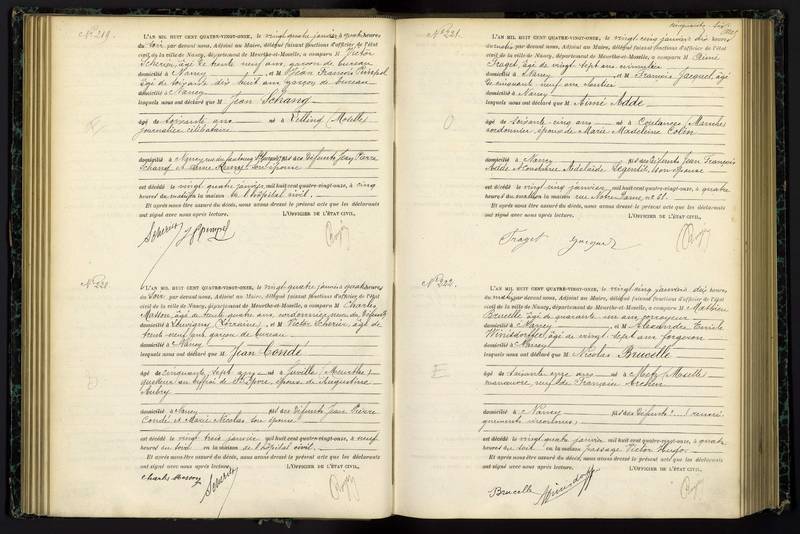 N° 219.
L'AN MIL HUIT CENT QUATRE-VINGT-ONZE, le vingt quatre janvier à quatre heures
du soir par devant nous, Adjoint au Maire, délégué faisant fonctions d'officier de l'état
civil de la ville de Nancy, département de Meurthe-et-Moselle, a comparu M. Victor
Scherier, âgé de trente neuf ans, garçon de bureau
domicilié à Nancy, et M. Jean François
âgé de soixante dix huit ans garçon de bureau
domicilié à Nancy
lesquels nous ont déclaré que M. Jean Schang
âgé de soixante ans né à Velling (Moselle)
journalier célibataire
domicilié à Nancy, rue du faubourg fils des défunts Jean Pierre
Schang et Anne son épouse
est décédé le vingt quatre janvier mil huit cent quatre-vingt-onze, à cinq
heures du matin en la maison de l'hôpital civil.
Et après nous être assuré du décès, nous avons dressé le présent acte que les déclarants
ont signé avec nous après lecture. L'OFFICIER DE L'ÉTAT CIVIL,
N° 220.
L'AN MIL HUIT CENT QUATRE-VINGT-ONZE, le vingt quatre janvier quatre heures
du soir par devant nous, Adjoint au Maire, délégué faisant fonctions d'officier de l'état
civil de la ville de Nancy, département de Meurthe-et-Moselle, a comparu M. Charles
Masson, âgé de trente quatre ans, cordonnier, neveu du défunt
domicilié à Louvigny (Lorraine), et M. Victor Scherier, âgé de
trente neuf ans garçon de bureau
domicilié à Nancy
lesquels nous ont déclaré que M. Jean Condé
âgé de cinquante sept ans né à Juville (Meurthe)
époux de Augustine
Aubry
domicilié à Nancy fils des défunts Jean Pierre
Condé et Marie Nicolas son épouse
est décédé le vingt trois janvier mil huit cent quatre-vingt-onze, à neuf
heures du soir en la maison de l'hôpital civil.
Et après nous être assuré du décès, nous avons dressé le présent acte que les déclarants
ont signé avec nous après lecture. L'OFFICIER DE L'ÉTAT CIVIL,
Charles Masson
N° 221.
L'AN MIL HUIT CENT QUATRE-VINGT-ONZE, le vingt cinq janvier dix heures
du matin par devant nous, Adjoint au Maire, délégué faisant fonctions d'officier de l'état
civil de la ville de Nancy, département de Meurthe-et-Moselle, a comparu M. Aimé
Traget, âgé de vingt sept ans
domicilié à Nancy, et M. François Jacquel, âgé
de cinquante neuf ans
domicilié à Nancy
lesquels nous ont déclaré que M. Aimé Adde
âgé de soixante cinq ans né à Coutances (Manche)
cordonnier époux de Marie Madeleine Colin
domicilié à Nancy fils des défunts Jean François
Adde et Adélaïde Legentil son épouse
est décédé le vingt cinq janvier mil huit cent quatre-vingt-onze, à quatre
heures du matin en la maison rue Notre Dame n° 51.
Et après nous être assuré du décès, nous avons dressé le présent acte que les déclarants
ont signé avec nous après lecture. L'OFFICIER DE L'ÉTAT CIVIL,
Traget Jacquel
N° 222.
L'AN MIL HUIT CENT QUATRE-VINGT-ONZE, le vingt cinq janvier dix heures
du matin par devant nous, Adjoint au Maire, délégué faisant fonctions d'officier de l'état
civil de la ville de Nancy, département de Meurthe-et-Moselle, a comparu M. Mathieu
Brucelle âgé de quarante un ans corroyeur
domicilié à Nancy, et M. Alexandre Emile
âgé de vingt sept ans forgeron
domicilié à Nancy
lesquels nous ont déclaré que M. Nicolas Brucelle
âgé de soixante onze ans né à Metz, Moselle
manœuvre, veuf de Françoise
domicilié à Nancy fils des défunts (renseignements
inconnus)
est décédé le vingt quatre janvier mil huit cent quatre-vingt-onze, à quatre
heures du soir en la maison passage Victor Hugo
Et après nous être assuré du décès, nous avons dressé le présent acte que les déclarants
ont signé avec nous après lecture. L'OFFICIER DE L'ÉTAT CIVIL,
Brucelle